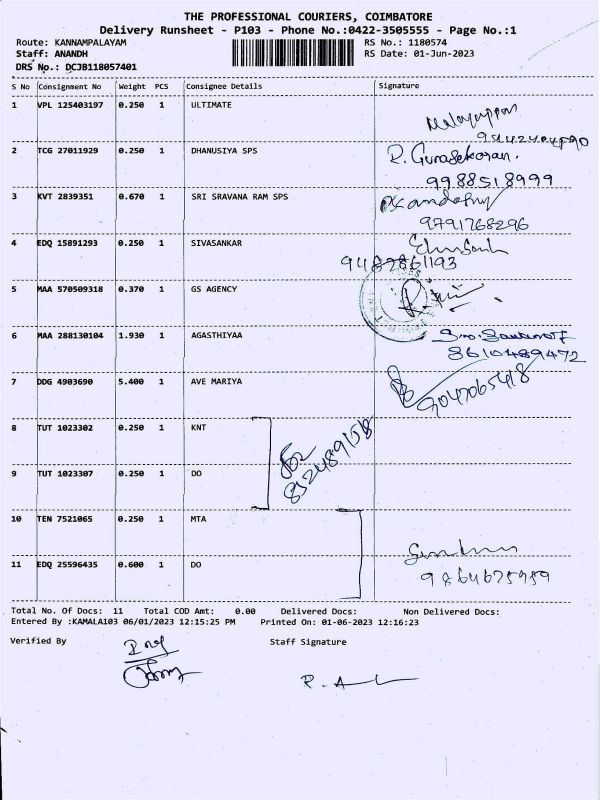 THE PROFESSIONAL COURIERS, COIMBATORE
Delivery Runsheet - P103 - Phone No.:0422-3505555 - Page No.:1
Route: KANNAMPALAYAM RS No.: 1180574
Staff: ANANDH RS Date: 01-Jun-2023
DRS No.: DCJB118057401
S No Consignment No Weight PCS Consignee Details Signature
1 VPL 125403197 0.250 1 ULTIMATE
2 TCG 27011929 0.250 1 DHANUSIYA SPS R. Gunasekaran.
9988518999
3 KVT 2839351 0.670 1 SRI SRAVANA RAM SPS
9791768296
4 EDQ 15891293 0.250 1 SIVASANKAR
5 MAA 570509318 0.370 1 GS AGENCY
6 MAA 288130104 1.930 1 AGASTHIYAA
8610489472
7 DDG 4903690 5.400 1 AVE MARIYA
9047065418
8 TUT 1023302 0.250 1 KNT
9 TUT 1023307 0.250 1 DO
10 TEN 7521065 0.250 1 MTA
11 EDQ 25596435 0.600 1 DO
Total No. Of Docs: 11 Total COD Amt: 0.00 Delivered Docs: Non Delivered Docs:
Entered By :KAMALA103 06/01/2023 12:15:25 PM Printed On: 01-06-2023 12:16:23
Verified By Staff Signature